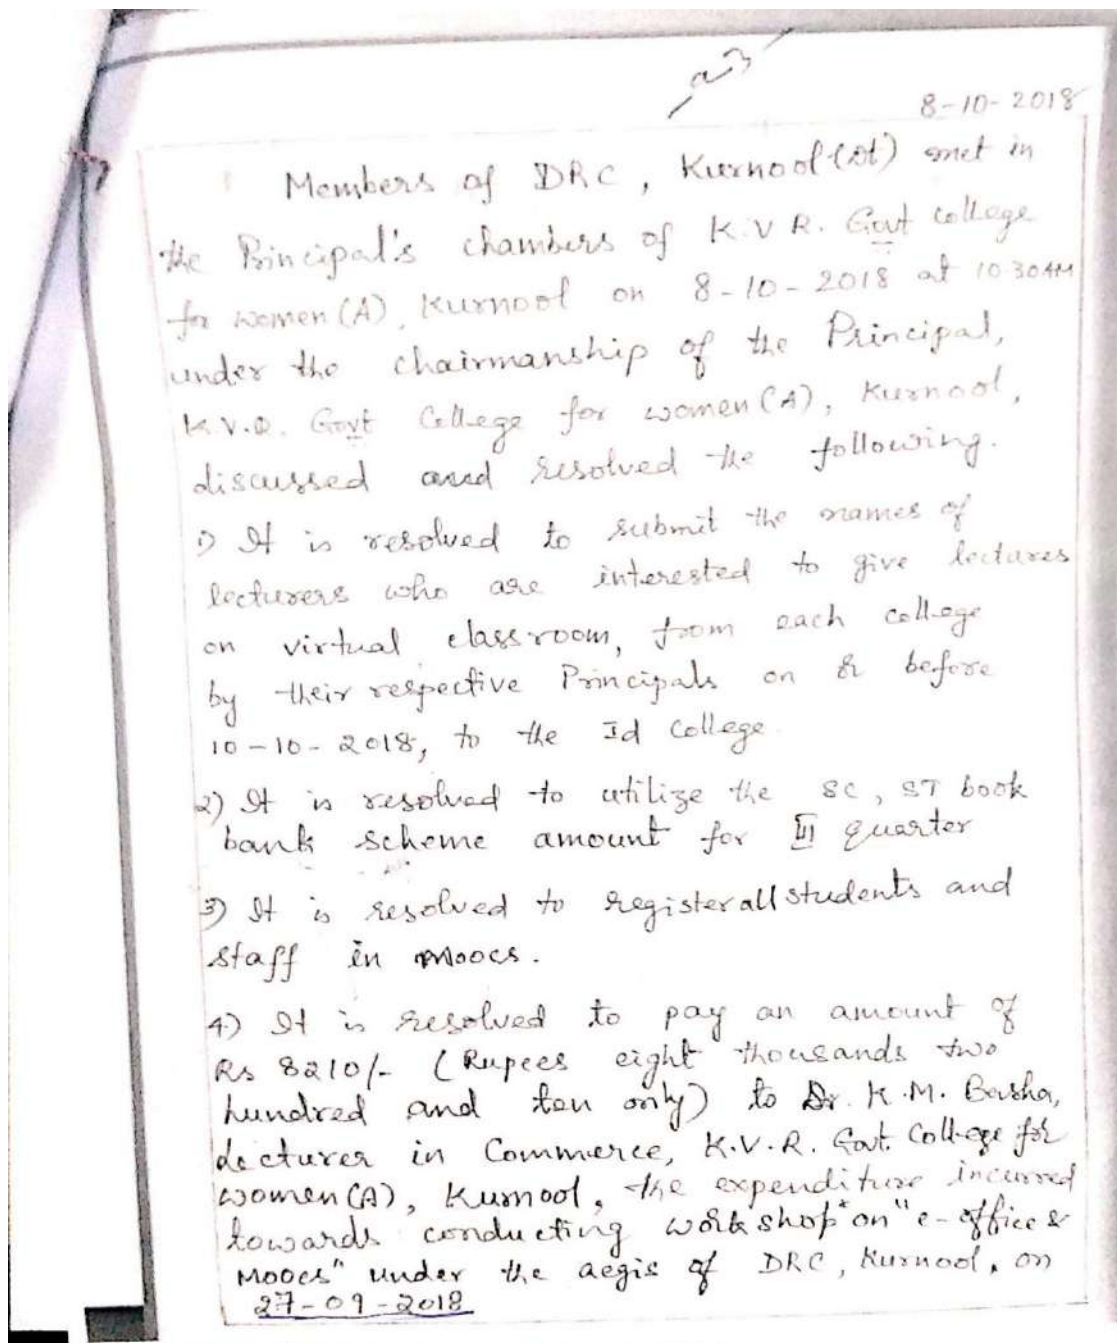 8-10-2018
Members of DRC, Kurnool (Dt) met in
the Principal's chambers of K.V R. Govt college
for women (A), Kurnool on 8-10-2018 at 10 30 AM
under the chairmanship of the Principal,
K.V.R. Govt College for women (A), Kurnool,
discussed and resolved the following.
1) It is resolved to submit the names of
lecturers who are interested to give lectures
on virtual classroom, from each college
by their respective Principals on or before
10-10-2018, to the Id College.
2) It is resolved to utilize the SC, ST book
bank scheme amount for III quarter
3) It is resolved to register all students and
staff in Moocs.
4) It is resolved to pay an amount of
Rs 8210/- (Rupees eight thousands two
hundred and ten only) to Dr. K.M. Basha,
Lecturer in Commerce, K.V.R. Govt. College for
women (A), Kurnool, the expenditure incurred
towards conducting workshop on "e-office &
Moocs" under the aegis of DRC, Kurnool, on
27-09-2018